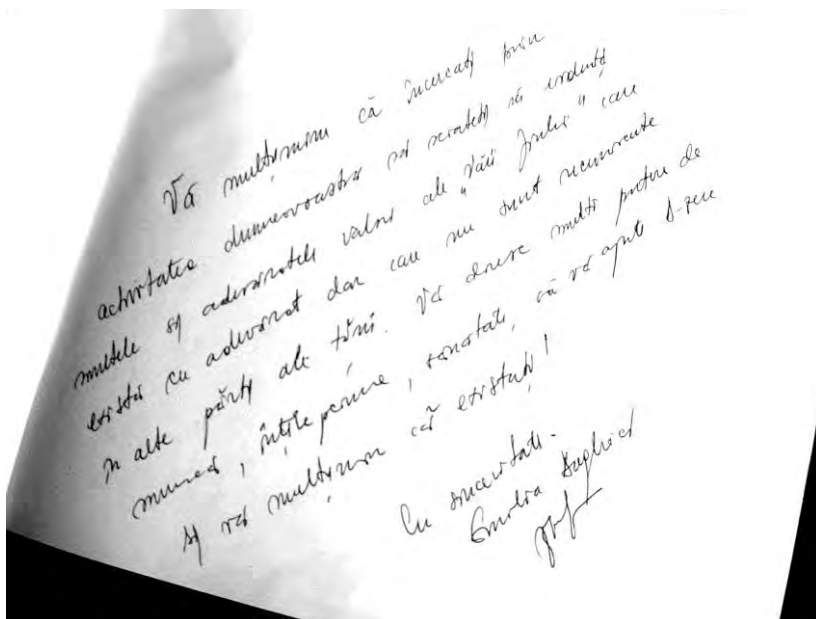 Vă mulțumim că încercați prin
activitatea dumneavoastră să scoateți în evidență
multele și adevăratele valori ale "Văii Jiului" care
există cu adevărat dar care nu sunt recunoscute
în alte părți ale țării. Vă doresc multă putere de
muncă, înțelepciune, sănătate, că vă ajute D-zeu
și vă mulțumim că existați!
Cu sinceritate.
Emilia